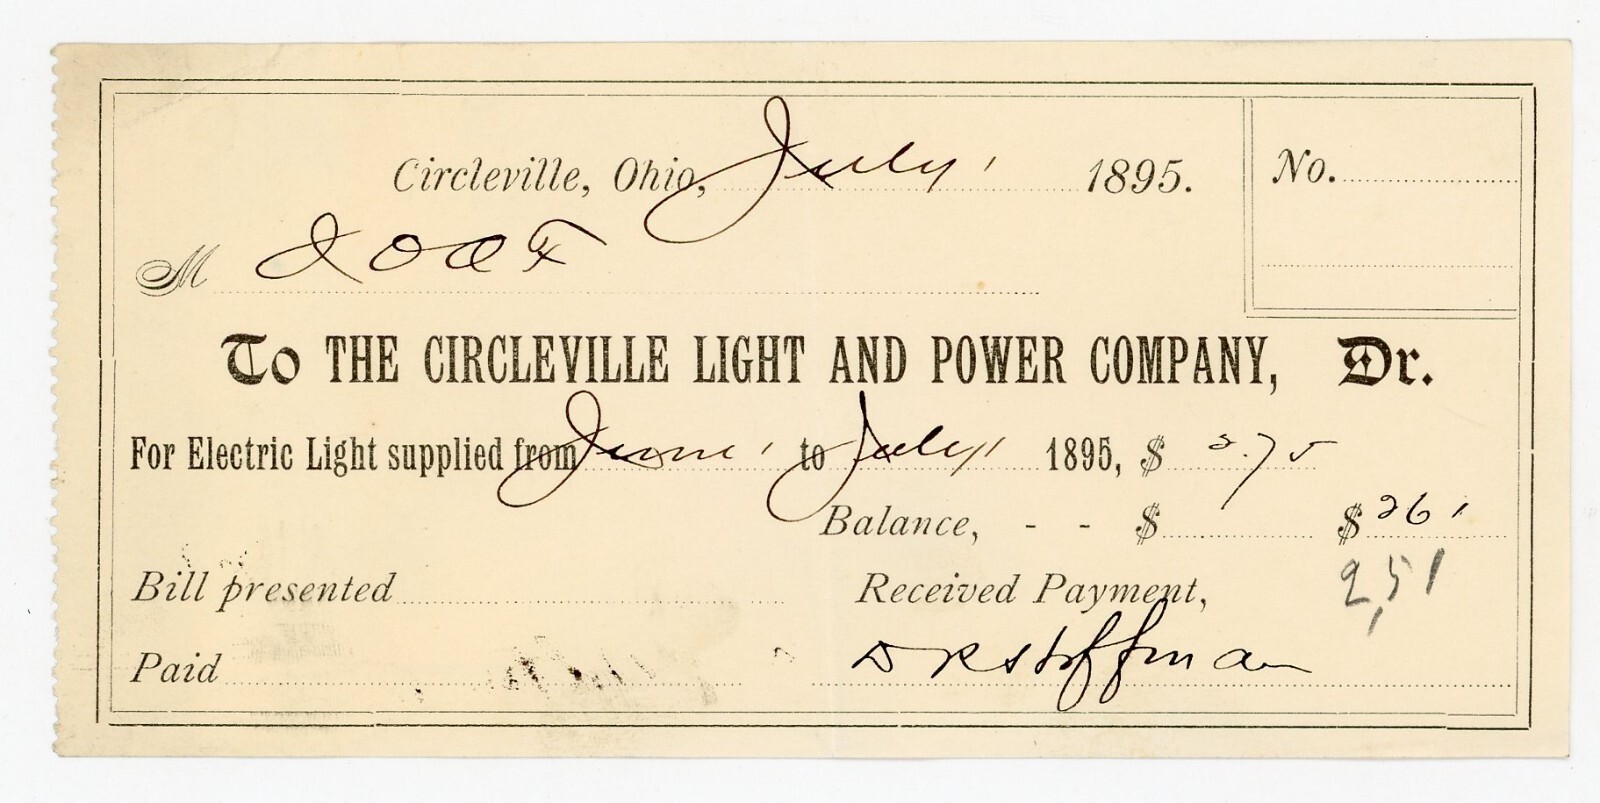 Circleville, Ohio, July 1 1895. No.
M I O O F
To THE CIRCLEVILLE LIGHT AND POWER COMPANY, Dr.
For Electric Light supplied from June 1 to July 1 1895, $ 2.75
Balance, - - $ $ 261
Bill presented Received Payment, 2,51
Paid